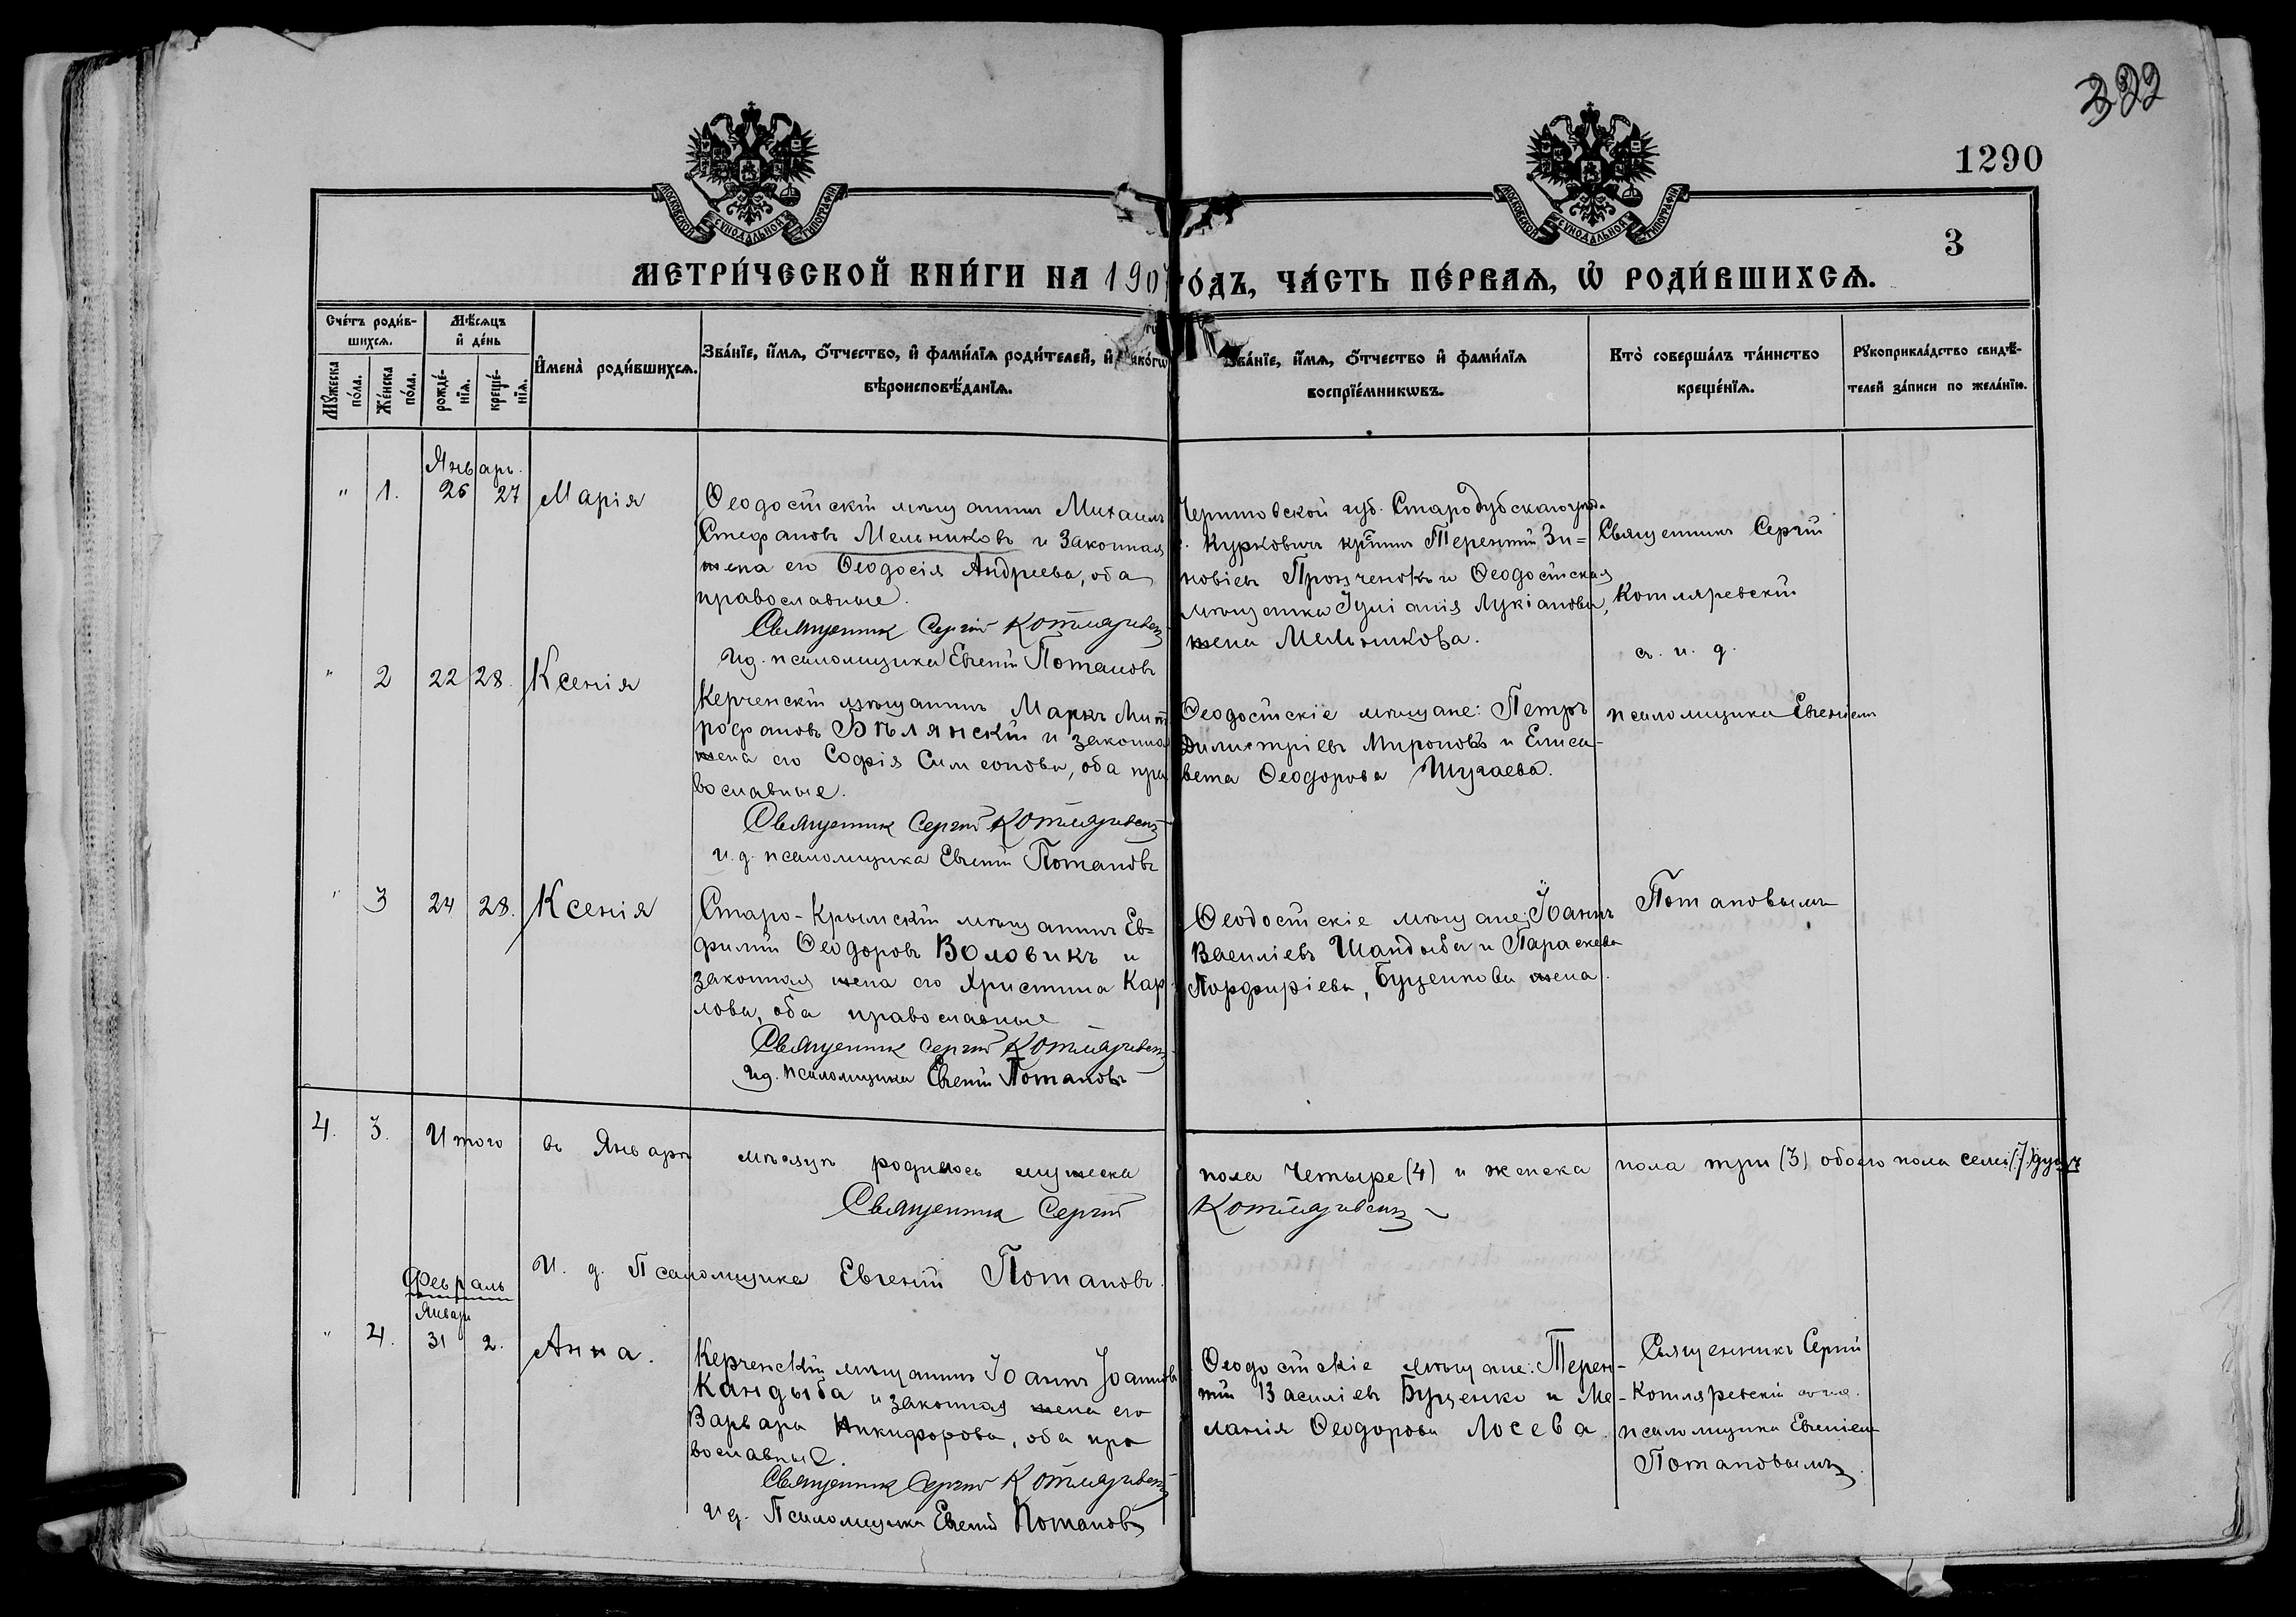 322
1290
3
МОСКОВСКОЙ СУНОДАЛЬНОЙ ТИПОГРАФІИ
МОСКОВСКОЙ СУНОДАЛЬНОЙ ТИПОГРАФІИ
МЕТРИ́ЧЕСКОЙ КНИ́ГИ НА 190 го́дъ, ЧА́СТЬ ПЕ́РВАѦ, Ѡ РОДИ́ВШИХСѦ.
Сче́тъ роди́в-
шихсѧ.
Мѣ́сяцъ
и де́нь
Мꙋ́жеска
по́ла.
Же́нска
по́ла.
рожде́-
нїѧ.
креще́-
нїѧ.
Имена̀ роди́вшихсѧ.
Зва́нїе, и́мѧ, о́тчество, и фами́лїѧ роди́телей, и како́гѡ
вѣроисповѣ́данїѧ.
Зва́нїе, и́мѧ, о́тчество и фами́лїѧ
воспрїе́мникѡвъ.
Кто̀ соверша́лъ та́инство
креще́нїѧ.
Рꙋкоприкла́дство свидѣ́-
телей за́писи по жела́нїю.
Январь.
" 1. 26 27 Марія
Ѳеодосійскій мѣщанинъ Михаилъ
Стефановъ Мельниковъ и законная
жена его Ѳеодосія Андреева, оба
православные.
Священник Сергій Котляревскій
И.д. псаломщика Евгеній Потаповъ
Черниговской губ. Стародубскаго уѣзд.
с. Курковичъ кр-нинъ Терентій Зи=
новіевъ Прощенокъ и Ѳеодосійская
мѣщанка Іуліанія Лукіанова,
жена Мельникова.
Священникъ Сергій
Котляревскій
съ и. д.
" 2 22 28. Ксенія
Керченскій мѣщанинъ Маркъ Мит
рофановъ Бѣлянскій и законна
жена его Софія Симеонова, оба пра
вославные.
Священник Сергій Котляревскій
и. д. псаломщика Евгеній Потаповъ
Ѳеодосійскіе мѣщане: Петръ
Димитріевъ Мироновъ и Елиса-
вета Ѳеодорова Шугаева.
псаломщика Евгеніемъ
" 3 24 28. Ксенія
Старо-Крымскій мѣщанинъ Ев=
фимій Ѳеодоровъ Воловикъ и
законная жена его Христина Кар
лова, оба православные
Священник Сергій Котляревскій
И.д. псаломщика Евгеній Потаповъ
Ѳеодосійскіе мѣщане: Іоаннъ
Василіевъ Шандыба и Параскева
Порфиріева, Буценкова жена.
Потаповымъ
4. 3. Итого въ Январѣ мѣсяцѣ родилось мужеска пола четыре (4) и женска пола три (3) обоего пола семь (7) душъ
Священник Сергій Котляревскій
И. д. Псаломщика Евгеній Потаповъ.
Февраль
Январ
" 4. 31 2. Анна.
Керченскій мѣщанинъ Іоаннъ Іоанновъ
Кандыба и законная жена его
Варвара Никифорова, оба пра
вославные.
Священник Сергій Котляревскій
И д. Псаломщика Евгеній Потаповъ
Ѳеодосійскіе мѣщане: Терен-
тій Василіевъ Буценко и Ме-
ланія Ѳеодорова Лосева.
Священникъ Сергій
Котляревскій
псаломщика Евгеніемъ
Потаповымъ.